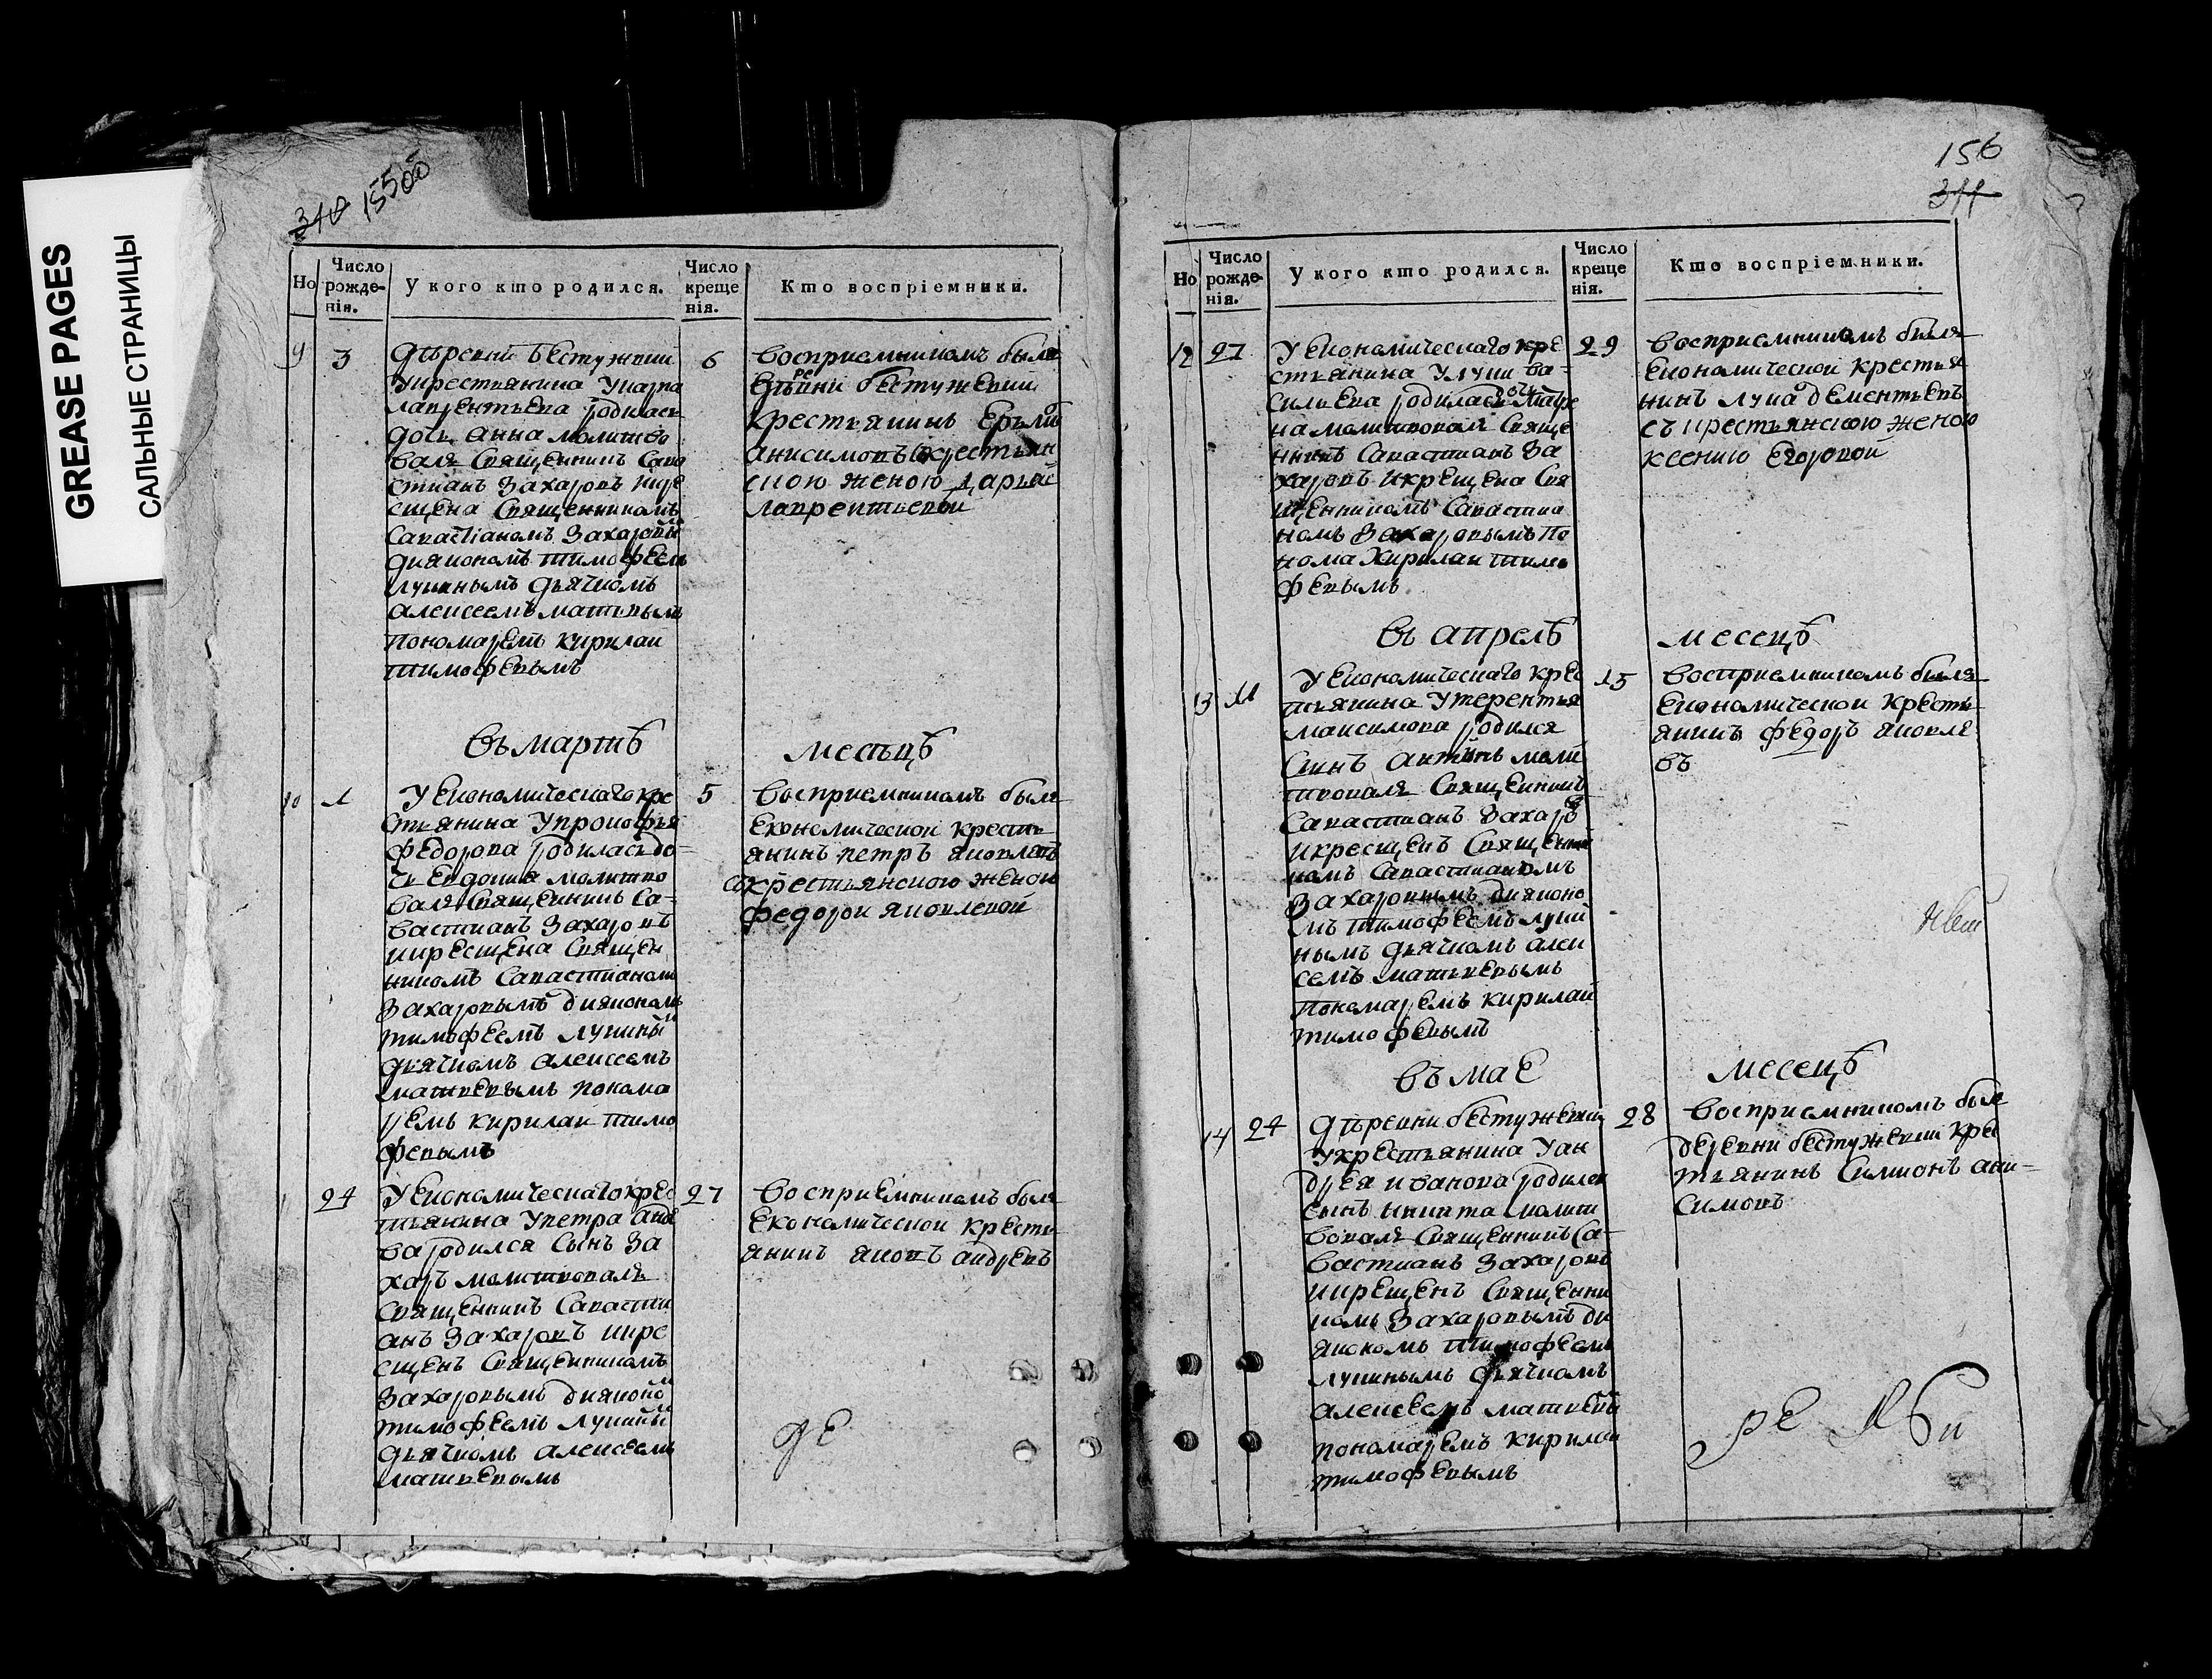 GREASE PAGES
САЛЬНЫЕ СТРАНИЦЫ
340 155об
Но
Число рожденія.
У кого кто родился.
Число крещенія.
Кто воспріемники.
9
3
дѣревни бестужевки
укрестьянина укарпа
лаврентьева родилась
дочь анна молитво
валъ Священникъ Сава
стианъ Захаровъ икре
сщена Священникомъ
Савастіаномъ Захаровы
диякономъ тимофеемъ
лукинымъ дьячкомъ
алексеемъ матвевымъ
пономаремъ кирилаи
тимофевымъ
6
восприемникомъ былъ
деревни бестужевки
крестьянинъ
анисимовъ скрестьян
скою женою дарьас
лаврентьевой
въ мартѣ
месѣцѣ
10
1
У економическаго кре
стьянина упрокофья
федорова родилась до=
чь евдокия молитво
валъ Священникъ Са=
вастианъ Захаровъ
икресщена Священ
никомъ Савастианомъ
Захаровымъ диякономъ
тимофеемъ лукины
дьячкомъ алексеемъ
матвевымъ понома
ремъ кирилаи тимо
февымъ
5
восприемникомъ былъ
економической кресть
янинъ петръ яковлевъ
сокрестьянскою женою
федорои яковлевой
24
У економическаго крес
тьянина упетра
ва родился сынъ За
харъ молитвовалъ
Священникъ Савасти
анъ Захаровъ икре
сщенъ Священникомъ
Захаровымъ дияконо
тимофеемъ лукины
дьячкомъ алексеемъ
матвевымъ
27
восприемникомъ былъ
економической кресть
янинъ яковъ андревъ
де
156
311
Но
Число рожденія.
У кого кто родился.
Число крещенія.
Кто воспріемники.
12
27
У економическаго кре
стьянина улуки ва=
сильева родилась дочь
на молитвовалъ Свяще
нникъ Савастианъ За
харовъ икрещена Свя
щенникомъ Савастиа
номъ Захаровымъ по
нома кирилаи тимо
февымъ
29
восприемникомъ былъ
економической крестья
нинъ лука дементьевъ
съ крестьянскою женою
ксению егоровой
въ апрелѣ
месецѣ
13
11
У економическаго крес
тьянина утерентья
максимова родился
Сынъ антонъ моли
твовалъ Священникъ
Савастианъ Захаровъ
икресщенъ Священни
комъ Савастианомъ
Захаровымъ дияконо
мъ тимофеемъ луки
нымъ дьячкомъ алек
семъ матвевымъ
пономаремъ кирилаи
тимофевымъ
15
восприемникомъ былъ
економической кресть
янинъ федоръ яковле
въ
въ мае
месецѣ
14
24
дѣревни бестужевки
укрестьянина уан
дрея иванова родился
сынъ никита молит
вовалъ Священникъ Са=
вастианъ Захаровъ
икрещенъ Священни
комъ Захаровымъ ди
якономъ тимофеемъ
лукинымъ дьячкомъ
алексеемъ матвевы
пономаремъ кирилаи
тимофевымъ
28
восприемникомъ былъ
деревни бестужевки крес
тьянинъ Симионъ ани=
симовъ
ре